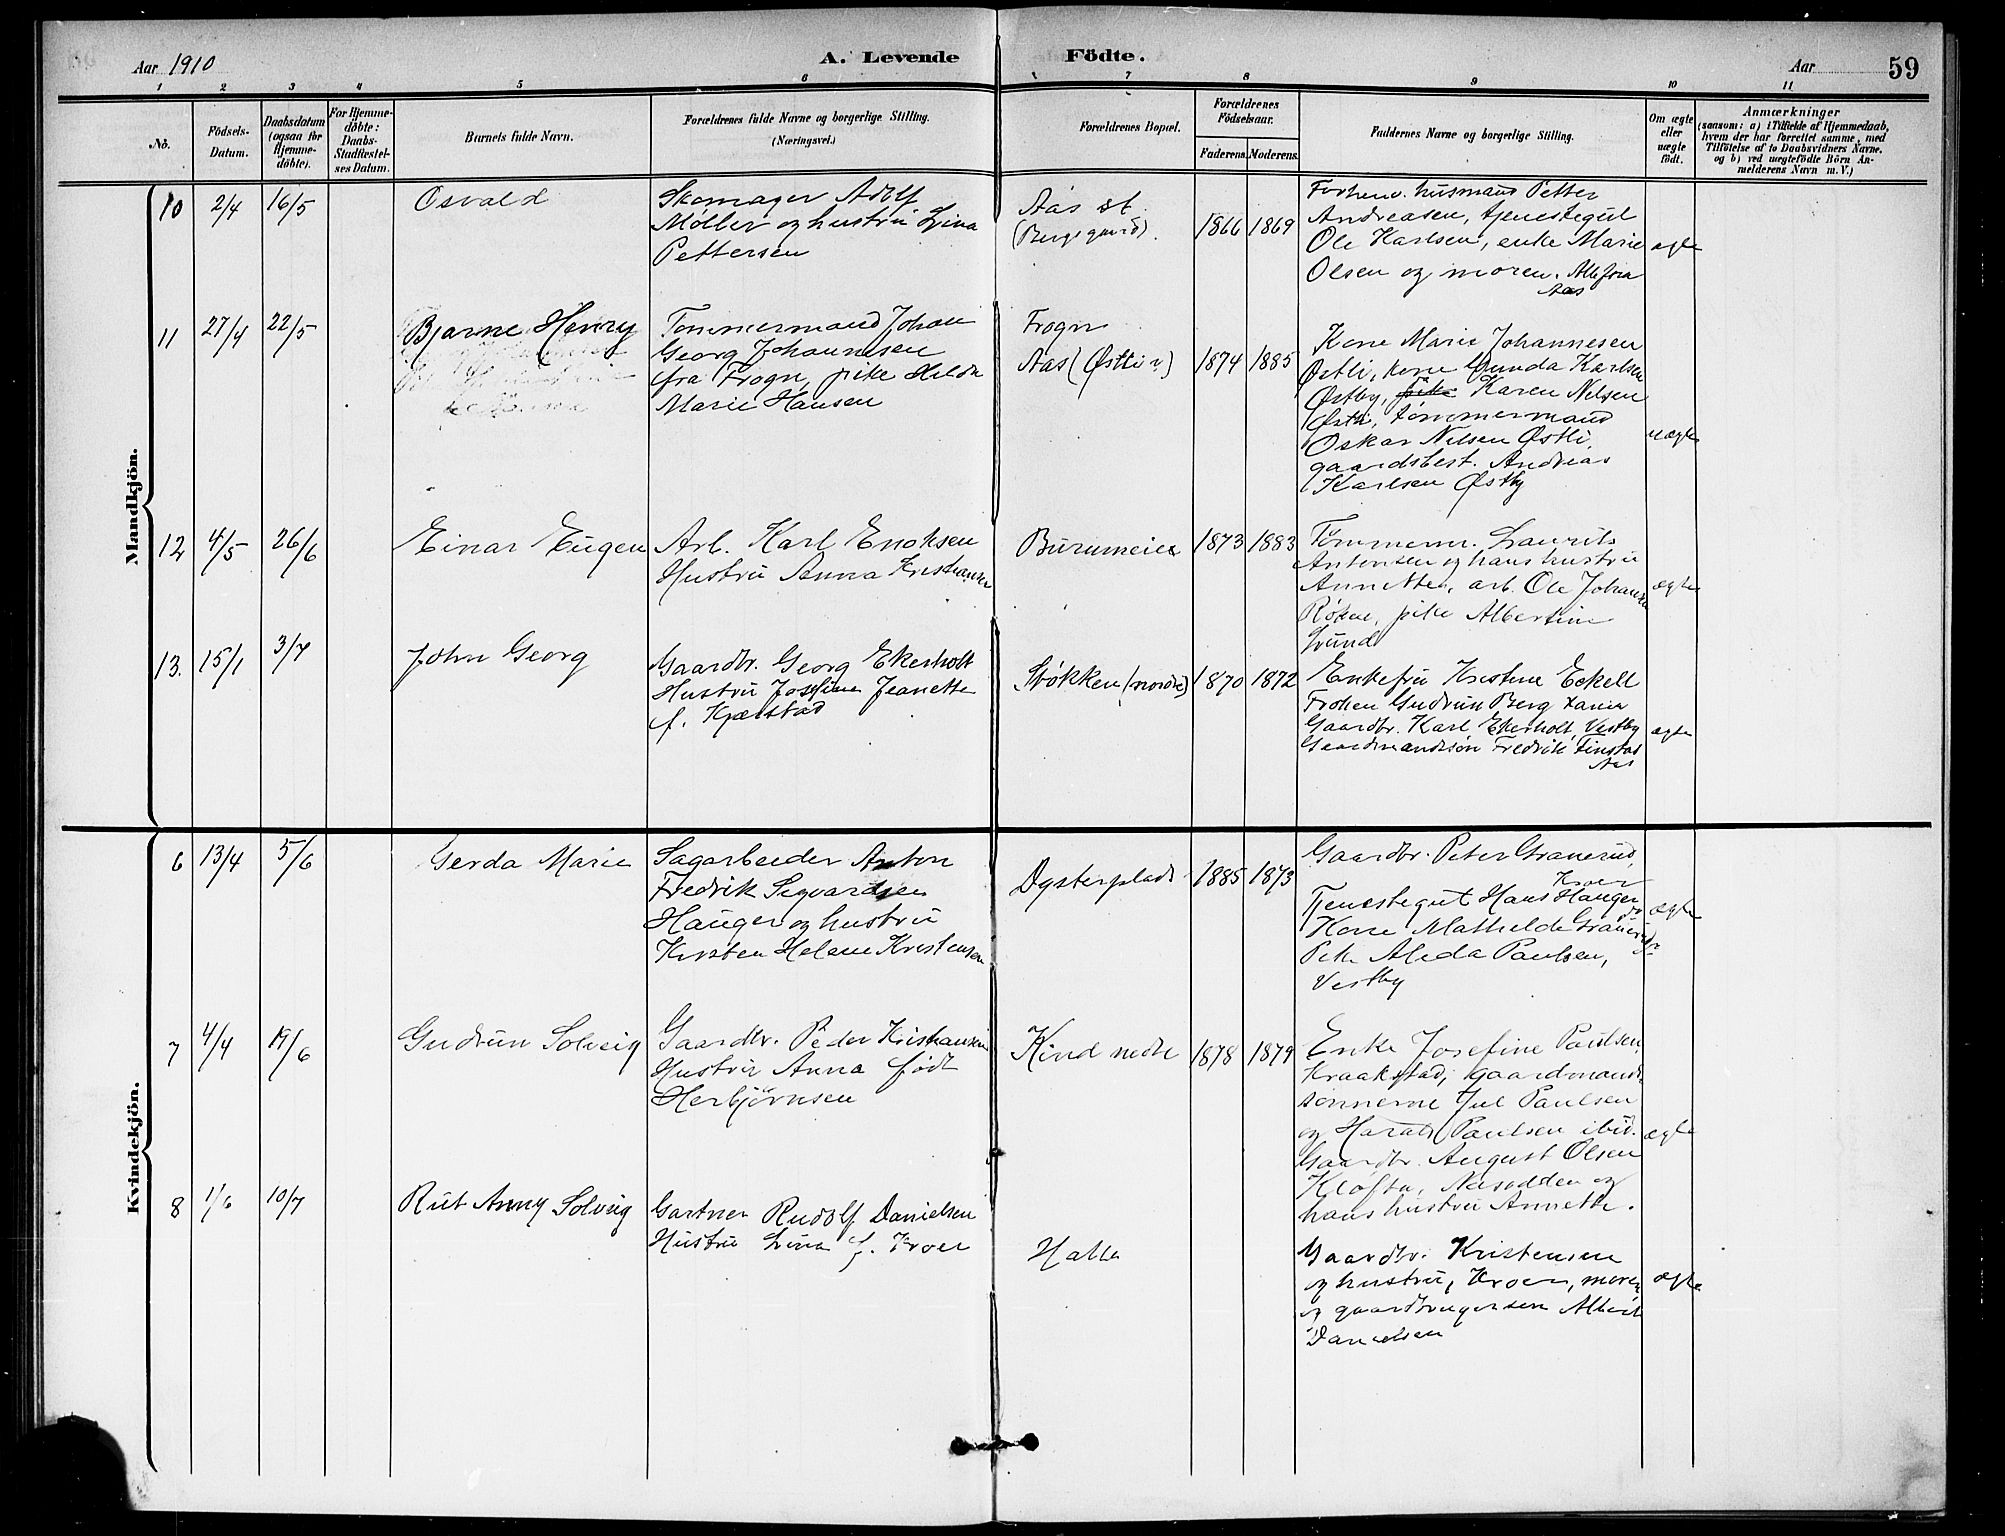 Aar 1910 A. Levende Födte. Aar 59
1 2 3 4 5 6 7 8 9 10 11
No.
Födsels-
Datum.
Daabsdatum
(ogsaa for
Hjemme-
döbte).
For Hjemme-
döbte:
Daabs-
Stadfæstel-
ses Datum.
Barnets fulde Navn.
Forældrenes fulde Navne og borgerlige Stilling.
(Næringsvei.)
Forældrenes Bopæl.
Forældrenes
Födselsaar.
Faderens. Moderens.
Faddernes Navne og borgerlige Stilling.
Om ægte
eller
uægte
födt.
Anmærkninger
(saasom: a) i Tilfælde af Hjemmedaab,
hvem der har forrettet samme, med
Tilföielse af to Daabsvidners Navne.
og b) ved uægtefödte Börn An-
melderens Navn m. V.)
Mandkjön.
10 2/4 16/5 Osvald
Skomager Adolf
Møller og hustru Lina
Pettersen
Aas st.
(Bergsgaard).
1866 1869
Forhenv. husmand Petter
Andreasen, tjenestegut
Ole Karlsen, enke Marie
Olsen og moren. Alle fra
Aas
ægte
11 27/4 22/5 Bjarne Henry
Tømmermand Johan
Georg Johannesen
fra Frogn, pike Hilda
Marie Hansen
Frogn
Aas (Østli)
1874 1885
Kone Marie Johannesen
Østli, kone Gunda Karlsen
Østby, pike Karen Nilsen
Østli, tømmermand
Oskar Nilsen Østli
gaardsbest. Andreas
Karlsen Østby
uægte
12 4/5 26/6 Einar Eugen
Arb. Karl Enoksen
Hustru Anna Kristiansen
1873 1883
Tømmerm. Laurits
Antonsen og hans hustru
Annette, arb. Ole Johansen
Røken, pike Albertine
Lund
ægte
13. 15/1 3/7 John Georg
Gaardbr. Georg Ekerholt
Hustru Josefine Jeanette
f. Kjælstad
Støkken (nordre)
1870 1872
Enkefru Kristine Eckell
Frøken Gudrun Berg
Gaardbr. Karl Ekerholt, Vestby
Gaardmandssøn Fredrik Finstad
Aas
ægte
Kvindekjön.
6 13/4 5/6 Gerda Marie
Sagarbeider Anton
Fredrik Sigvardsen
Hauger og hustru
Kirsten Helene Kristensen
Dysterplads
1885 1873
Gaardbr. Peter Granerud,
Kroer
Tjenestegut Hans Hauger
do
Kone Mathilde Granerud
do
Pike Aleda Paulsen,
Vestby
ægte
7 4/4 19/6 Gudrun Solveig
Gaardbr. Peder Kristiansen
Hustru Anna født
Herbjørnsen
Kind nedre
1878 1879
Enke Josefine Paulsen,
Kraakstad, gaardmands-
sønnerne Jul Paulsen
og Harald Paulsen ibid.
Gaardbr. August Olsen
Kløfta, Nesodden og
hans hustru Annette.
ægte
8 1/6 10/7 Rut Anny Solveig
Gartner Rudolf Danielsen
Hustru Lina f. Kroer
Gaardbr. Kristensen
og hustru, Kroer, moren
og gaardbrugersøn Albert
Danielsen
ægte